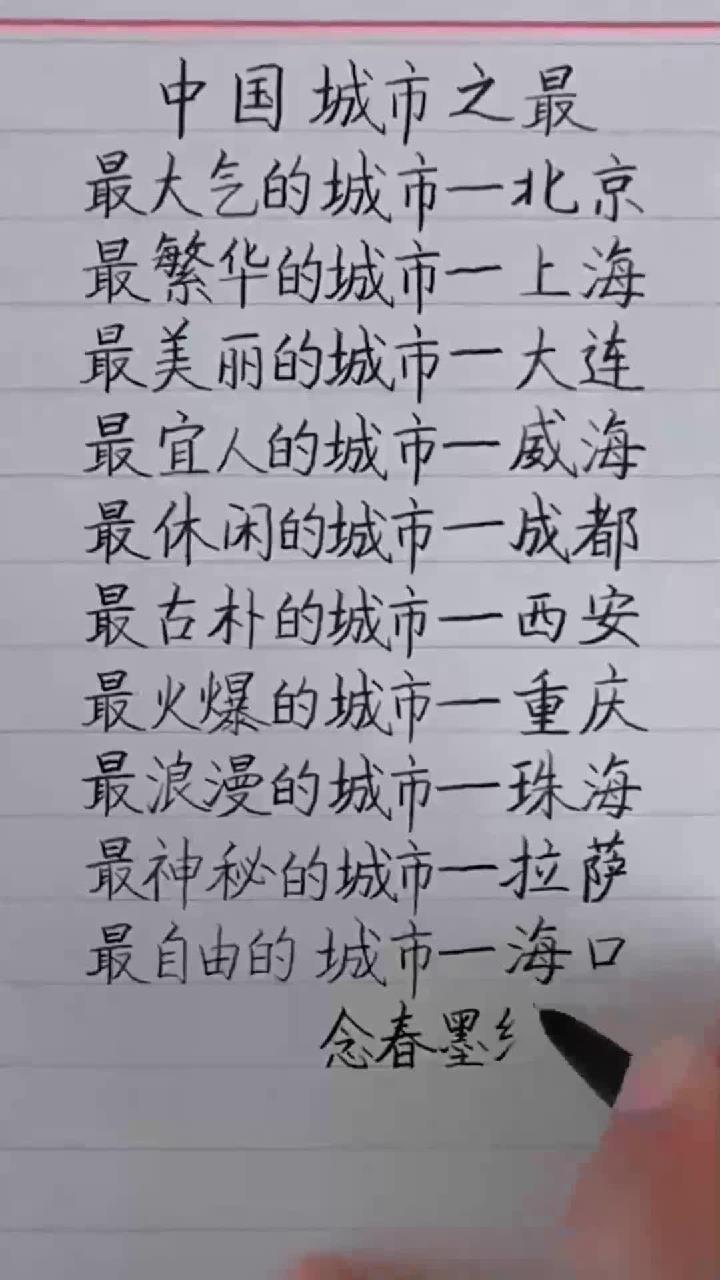 中国城市之最
最大气的城市一北京
最繁华的城市一上海
最美丽的城市一大连
最宜人的城市一威海
最休闲的城市一成都
最古朴的城市一西安
最火爆的城市一重庆
最浪漫的城市一珠海
最神秘的城市一拉萨
最自由的城市一海口
念春墨